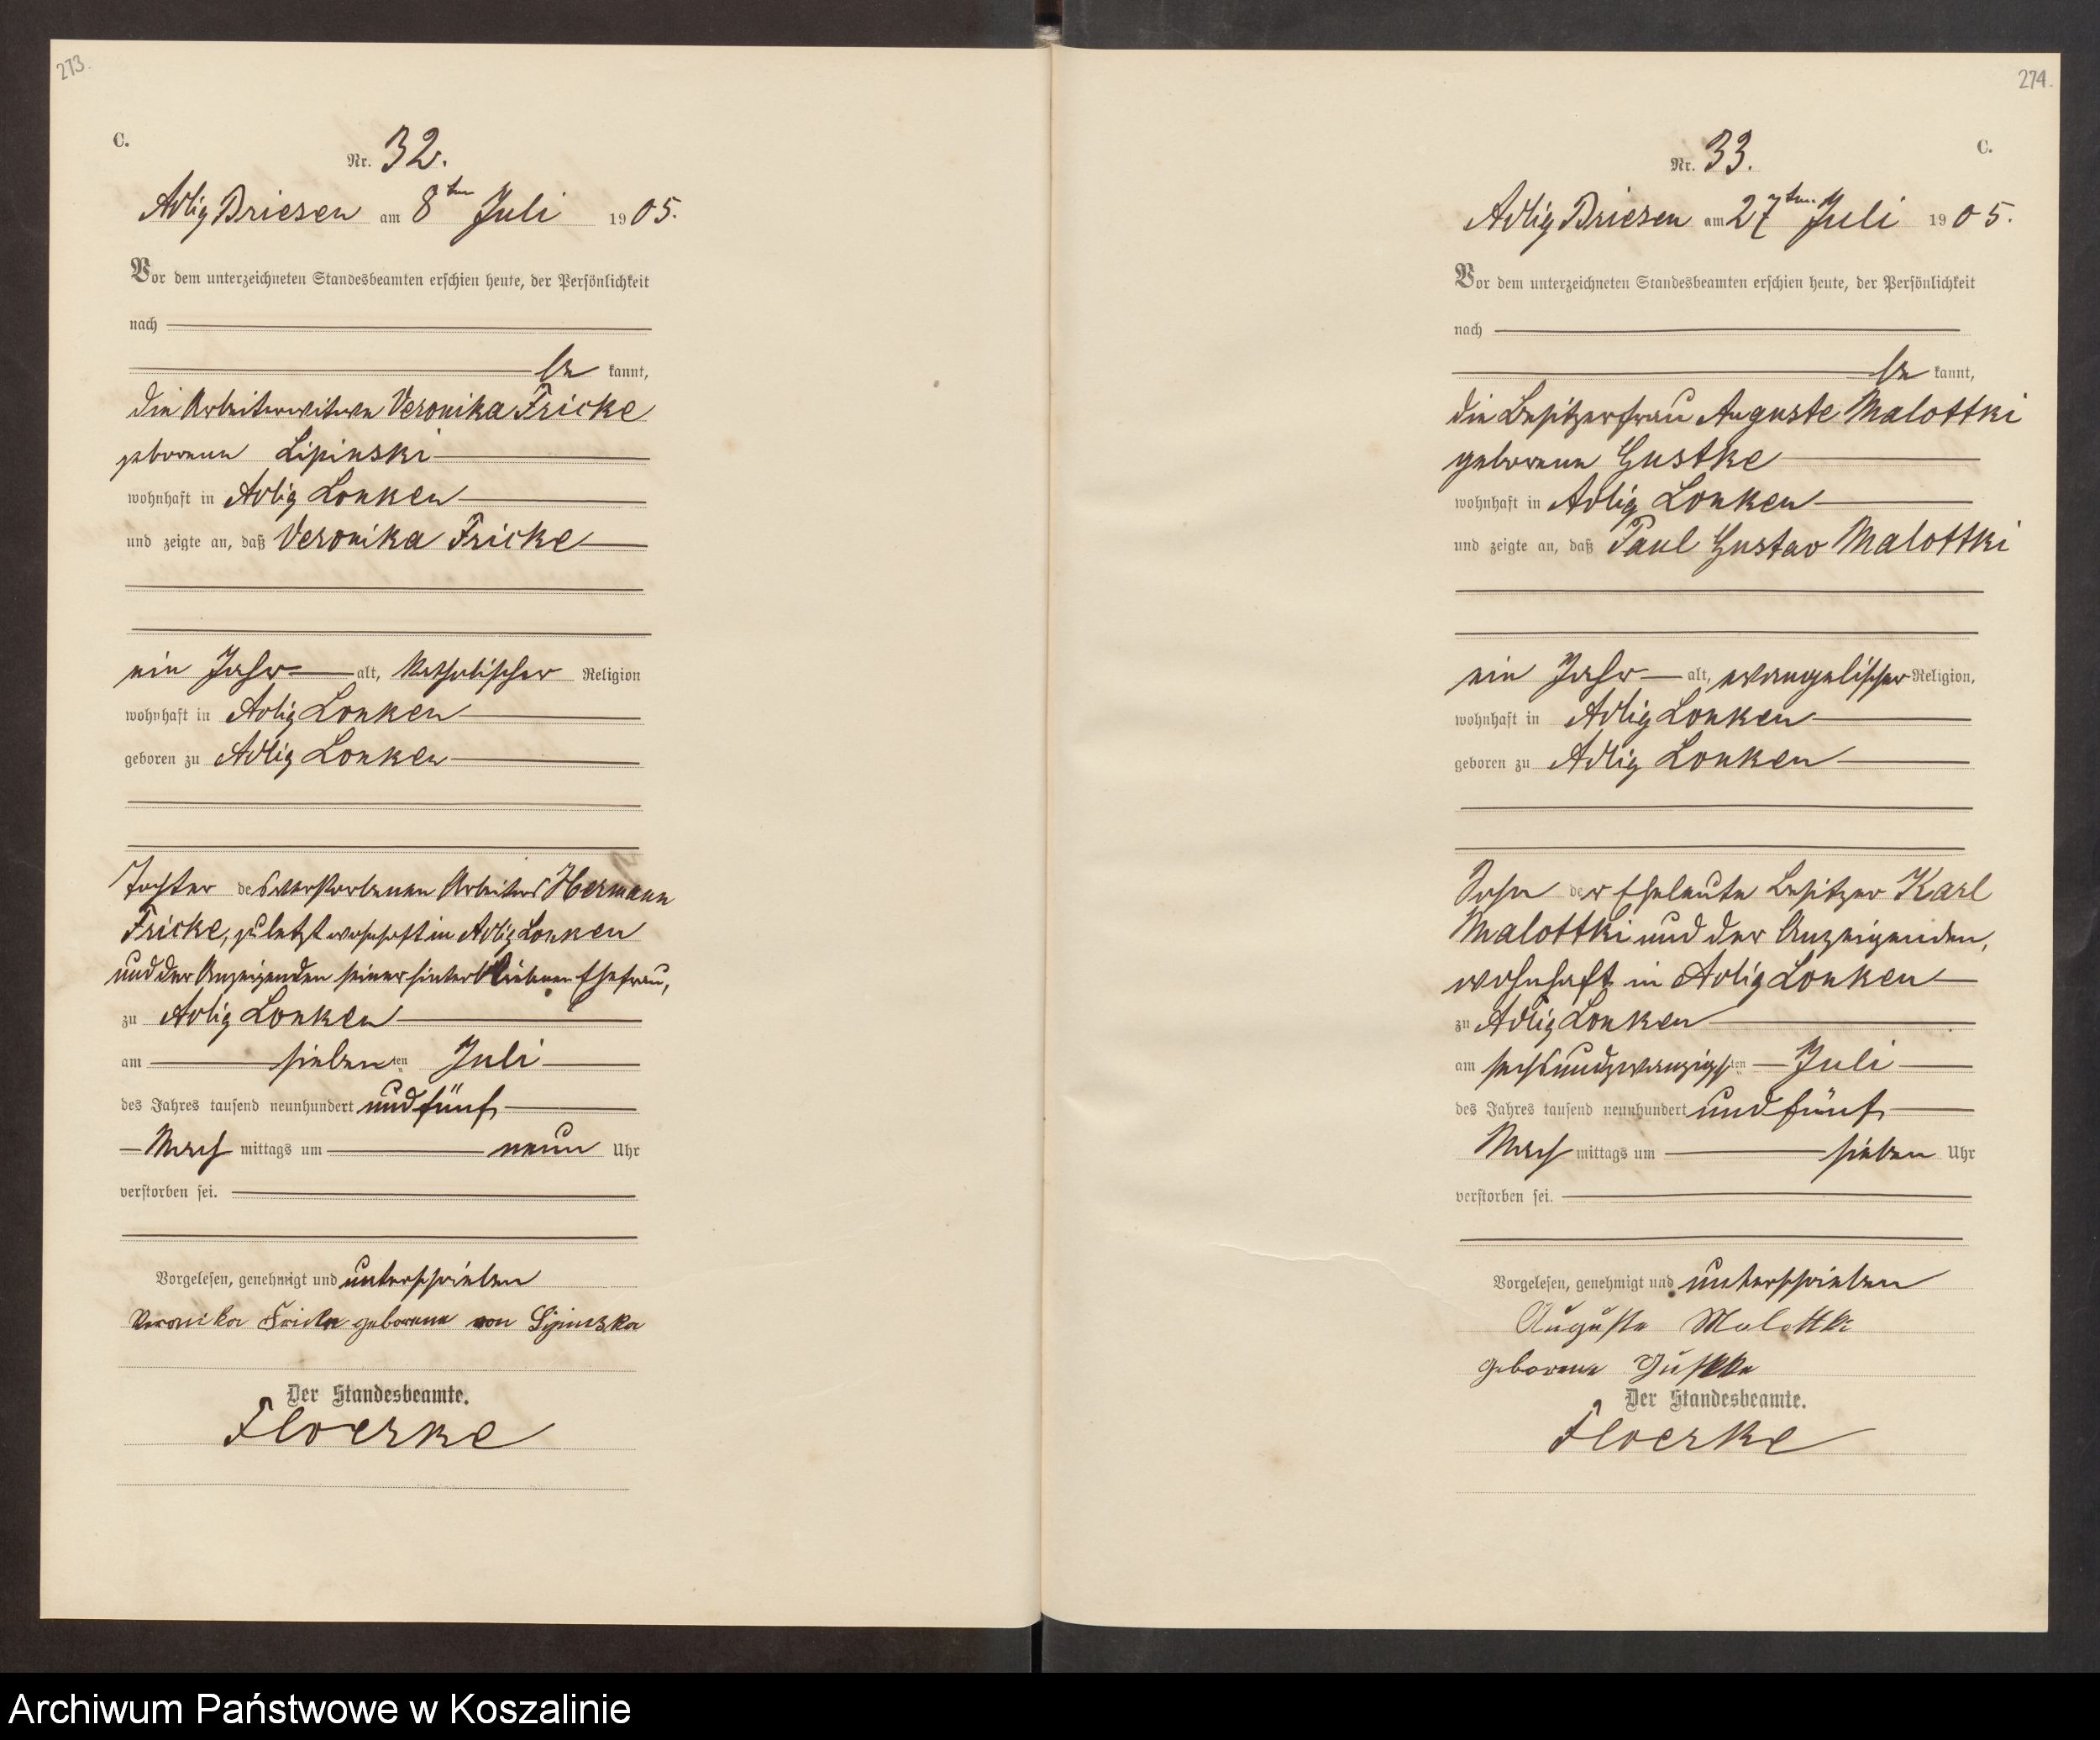 273.
C.
Nr. 32.
Adlig Briesen am 8ten Juli 1905.
Vor dem unterzeichneten Standesbeamten erschien heute, der Persönlichkeit
nach
be kannt,
die Arbeiterwitwe Veronika Fricke
geborene Lipinski
wohnhaft in Adlig Lonken
und zeigte an, daß Veronika Fricke
ein Jahr alt, katholischer Religion
wohnhaft in Adlig Lonken
geboren zu Adlig Lonken
Tochter des verstorbenen Arbeiters Hermann
Fricke, zuletzt wohnhaft in Adlig Lonken
und der Anzeigenden seiner hinterbliebenen Ehefrau,
zu Adlig Lonken
am siebenten Juli
des Jahres tausend neunhundert und fünf
Nach mittags um neun Uhr
verstorben sei.
Vorgelesen, genehmigt und unterschrieben
Veronika Fricke geborene von Lipinska
Der Standesbeamte.
Floerke
274.
C.
Nr. 33.
Adlig Briesen am 27ten Juli 1905.
Vor dem unterzeichneten Standesbeamten erschien heute, der Persönlichkeit
nach
be kannt,
die Besitzerfrau Auguste Malottki
geborene Gustke
wohnhaft in Adlig Lonken
und zeigte an, daß Paul Gustav Malottki
ein Jahr alt, evangelischer Religion,
wohnhaft in Adlig Lonken
geboren zu Adlig Lonken
Sohn der Eheleute Besitzer Karl
Malottki und der Anzeigenden,
wohnhaft in Adlig Lonken
zu Adlig Lonken
am sechsundzwanzigsten Juli
des Jahres tausend neunhundert und fünf
Nach mittags um sieben Uhr
verstorben sei.
Vorgelesen, genehmigt und unterschrieben
Auguste Malottki
geborene Gustke
Der Standesbeamte.
Floerke
Archiwum Państwowe w Koszalinie